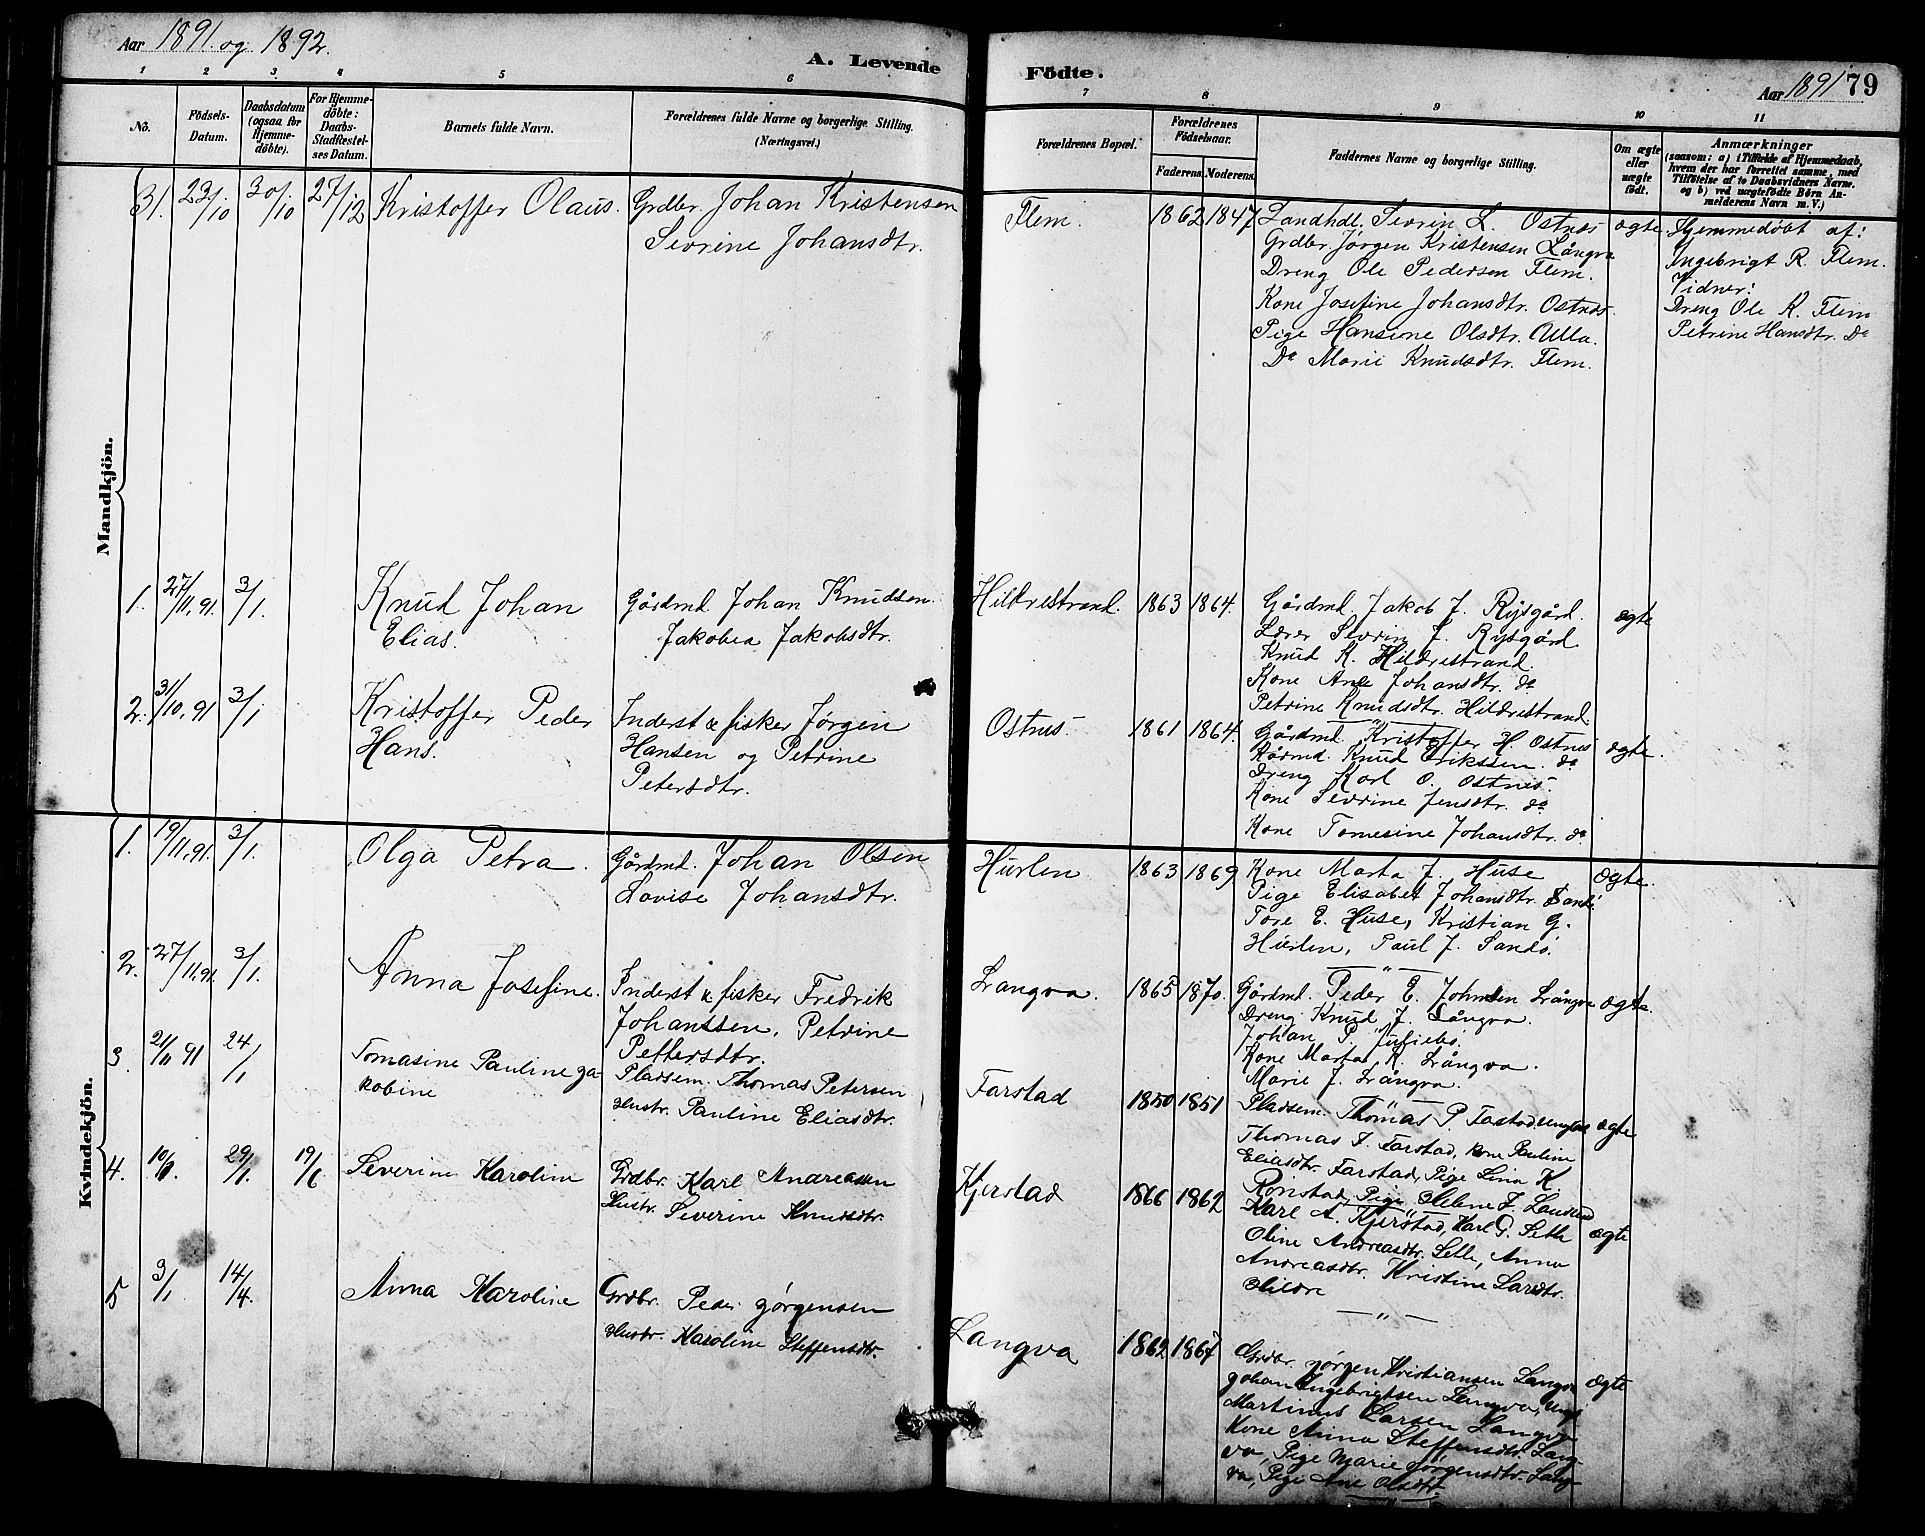 Aar 1891. og 1892.
A. Levende
Födte.
Aar 1891 79
1 2 3 4 5 6
7 8 9 10 11
No.
Födsels-
Datum.
Daabsdatum
(ogsaa for
Hjemme-
döbte).
For Hjemme-
döbte:
Daabs-
Stadfæstel-
ses Datum.
Barnets fulde Navn.
Forældrenes fulde Navne og borgerlige Stilling.
(Næringsvei.)
Forældrenes Bopæl.
Forældrenes
Födselsaar.
Faderens. Moderens.
Faddernes Navne og borgerlige Stilling.
Om ægte
eller
uægte
født.
Anmærkninger
(saasom: a) i Tilfælde af Hjemmedaab,
hvem der har forrettet samme, med
Tilföielse af to Daabsvidners Navne.
og b) ved uægtefödte Börn An-
melderens Navn m. V.)
Mandkjön.
31. 23/10 30/10 27/12 Kristoffer Olaus. Grdbr. Johan Kristensen
Sevrine Johansdtr.
Flem. 1862 1847 Landhdl. Sevrin L. Ostnes ægte
Grdbr. Jørgen Kristensen Långva
Dreng Ole Pedersen Flem.
Kone Josefine Johansdtr. Ostnes.
Pige Hansine Olsdtr. Ulla.
Do Marie Knudsdtr. Flem.
Hjemmedøbt af:
Ingebrigt R. Flem.
Vidner:
Dreng Ole K. Flem
Petrine Hansdtr. Do
1. 27/11.91. 3/1. Knud Johan
Elias.
Gårdmd. Johan Knudsen.
Jakobea Jakobsdtr.
Hildrestrand. 1863 1864. Gårdmd. Jakob J. Rysgård. ægte
Lærer Sevrin J. Rysgård
Knud K. Hildrestrand.
Kone Ane Johansdtr. do
Petrine Knudsdtr. Hildrestrand.
2. 31/10.91 3/1 Kristoffer Peder
Hans.
Inderst & fisker Jørgen
Hansen og Petrine
Petersdtr.
Ostnes. 1861 1864. Gårdmd. Kristoffer H. Ostnes ægte.
Gårmd. Knud Eriksen. do
Dreng Karl O. Ostnes.
Kone Sevrine Jensdtr. do
Kone Tomesine Johansdtr. do
Kvindekjön.
1. 19/11.91. 3/1. Olga Petra. Gårdmd. Johan Olsen
Lovise Johansdtr.
Hurlen 1863 1869 Kone Marta J. Huse ægte.
Pige Elisabet Johansdtr. Sandö.
Tore E. Huse, Kristian G.
Hurlen, Paul J. Sandö.
2. 27/11.91. 3/1. Anna Josefine. Inderst & fisker Fredrik
Johanssen, Petrine
Pettersdtr.
Langva. 1865 1870. Gårdmd. Peder E. Johnsen Långva ægte.
Dreng Knud J. Långva.
Johan P.
Kone Marta K. Långva.
Marie J. Långva.
3. 21/11 91 24/1 Tomasine Pauline Ja-
kobine
Pladsem. Thomas Petersen
Hustr. Pauline Eliasdtr.
Farstad 1850 1851 Pladsem. Thomas P. Fastad, ungkar ægte
Thomas J. Farstad, kone Pauline
Eliasdtr. Farstad, Pige Lina K.
Rönstad, Pige Helene J.
4. 10/1. 29/1. 19/6 Severine Karoline Grdbr. Karl Andreassen
Hustr. Severine Knudsdtr.
Kjerstad 1866 1862 Karl A. Kjerstad, Karl G. Sette ægte
Oline Andreasdtr. Sette, Anna
Andreasdtr. Kristine Larsdtr.
Hildre
5 3/1 14/4. Anna Karoline Grdbr. Peder Jørgensen
Hustr. Karoline Steffensdtr.
Langva 1862 1867 Grdbr. Jørgen Kristiansen Langva ægte
Johan Ingebrigtsen Langva, Ungk
Martinus Larsen Langva
Kone Anna Steffensdtr. Lang-
va, Pige Marie Jørgensdtr. Lang-
va, Pige Ane Olsdtr.